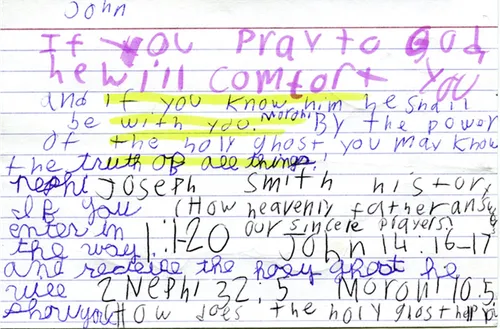 John
If you pray to God,
he will comfort you
and if you know him he shall
be with you. Moroni By the power
of the holy ghost you may know
the truth of all things!
Nephi Joseph Smith history
If you (How heavenly father answ
enter in our sincere prayers)
the way 1:1-20 John 14:16-17
and receive the holy ghost he
will 2 Nephi 32:5 Moroni 10:5
show you (How does the holy ghost